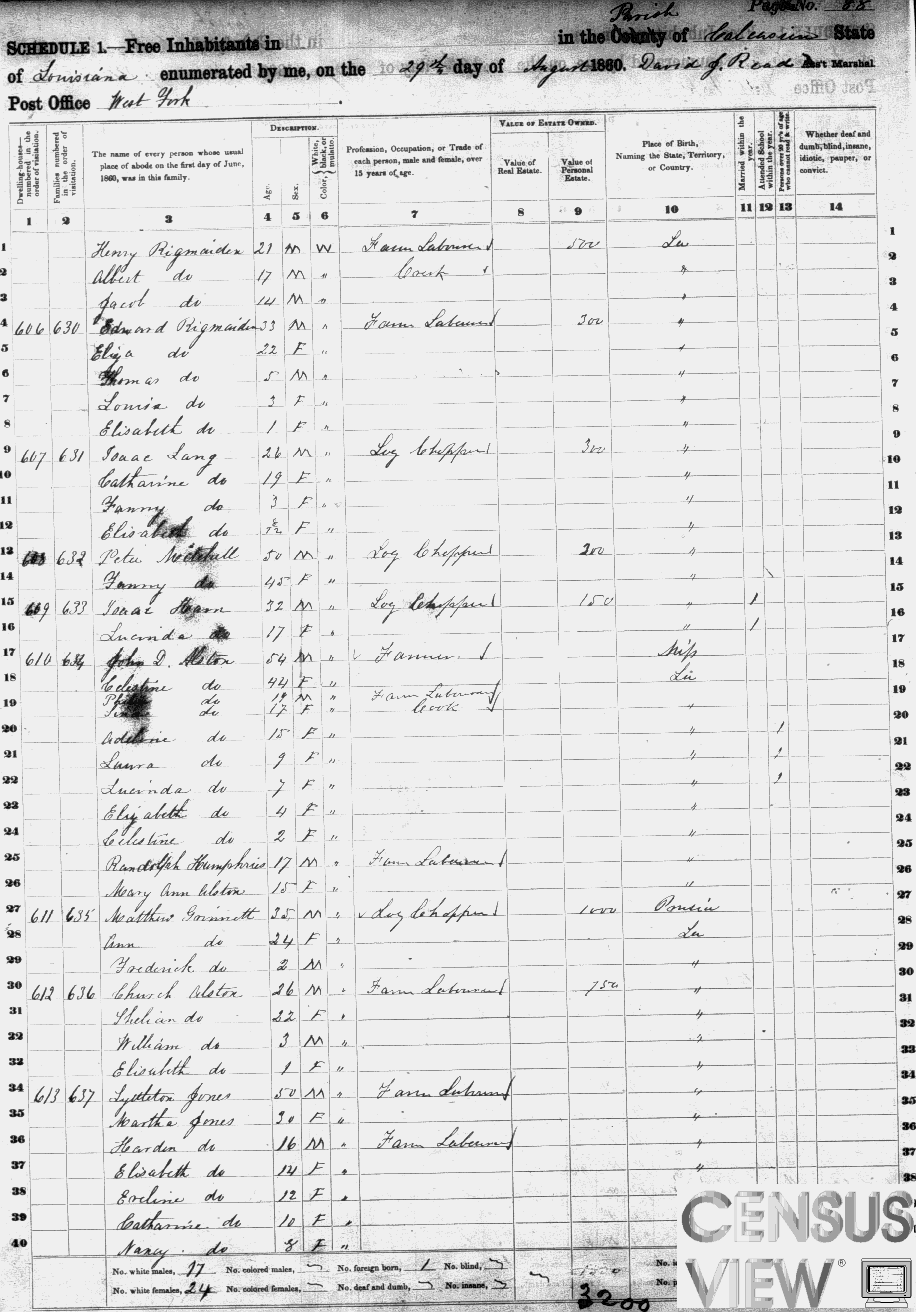 Page No. 88
SCHEDULE 1.—Free Inhabitants in in the County of Parish Calcasieu State
of Louisiana enumerated by me, on the 29th day of August 1860. David J. Read Ass't Marshal
Post Office West Fork
Dwelling-houses—numbered in the order of visitation.
Families numbered in the order of visitation.
The name of every person whose usual place of abode on the first day of June, 1860, was in this family.
DESCRIPTION.
Age.
Sex.
Color, White, black, or mulatto.
Profession, Occupation, or Trade of each person, male and female, over 15 years of age.
VALUE OF ESTATE OWNED.
Value of Real Estate.
Value of Personal Estate.
Place of Birth, Naming the State, Territory, or Country.
Married within the year.
Attended School within the year.
Persons over 20 y'rs of age who cannot read & write.
Whether deaf and dumb, blind, insane, idiotic, pauper, or convict.
1 2 3 4 5 6 7 8 9 10 11 12 13 14
1 Henry Rigmaiden 21 M W Farm Labourer 500 La 2
2 Albert do 17 M " " 
3 Jacob do 14 M " "
4 606 630 Edward Rigmaiden 33 M " Farm Labourer 300 " 5
5 Eliza do 22 F " " 6
6 Thomas do 5 M " " 7
7 Louisa do 3 F " " 8
8 Elisabeth do 1 F " " 9
9 607 631 Isaac Lang 26 M " Log Chopper 300 " 10
10 Catharine do 19 F " " 11
11 Fanny do 3 F " " 12
12 Elisabeth do F " " 13
13 608 632 Peter 50 M " Log Chopper 200 " 14
14 Fanny do 45 F " " 15
15 609 633 Isaac Ham 32 M " Log Chopper 150 " 1 16
16 Lucinda do 17 F " " 1 17
17 610 634 John D. Alston 54 M " Farmer Mip 18
18 Celestine do 44 F " La
do 19 M " Farm Labourer 19
19 do 17 F " Cook "
20 Adeline do 15 F " " 1 21
21 Laura do 9 F " " 22
22 Lucinda do 7 F " " 23
23 Elizabeth do 4 F " " 24
24 Celestine do 2 F " " 25
25 Randolph Humphries 17 M " Farm Labourer " 26
26 Mary Ann Alston 15 F " " 27
27 611 635 Matthew Grinnett 35 M " Log Chopper 1000 Prusia 28
28 Ann do 24 F " La 29
29 Frederick do 2 M " " 30
30 612 636 Church Alston 26 M " Farm Labourer 750 " 31
31 Shelian do 22 F " " 32
32 William do 3 M " " 33
33 Elisabeth do 1 F " " 34
34 613 637 Lyttleton Jones 50 M " Farm Labourer " 35
35 Martha Jones 30 F " " 36
36 Harden do 16 M " Farm Labourer " 37
37 Elisabeth do 14 F " " 38
38 Eveline do 12 F "
39 Catharine do 10 F "
40 Nancy do 8 F "
No. white males, 17 No. colored males, No. foreign born, 1 No. blind,
No. white females, 24 No. colored females, No. deaf and dumb, No. insane,
3200
CENSUS
VIEW®